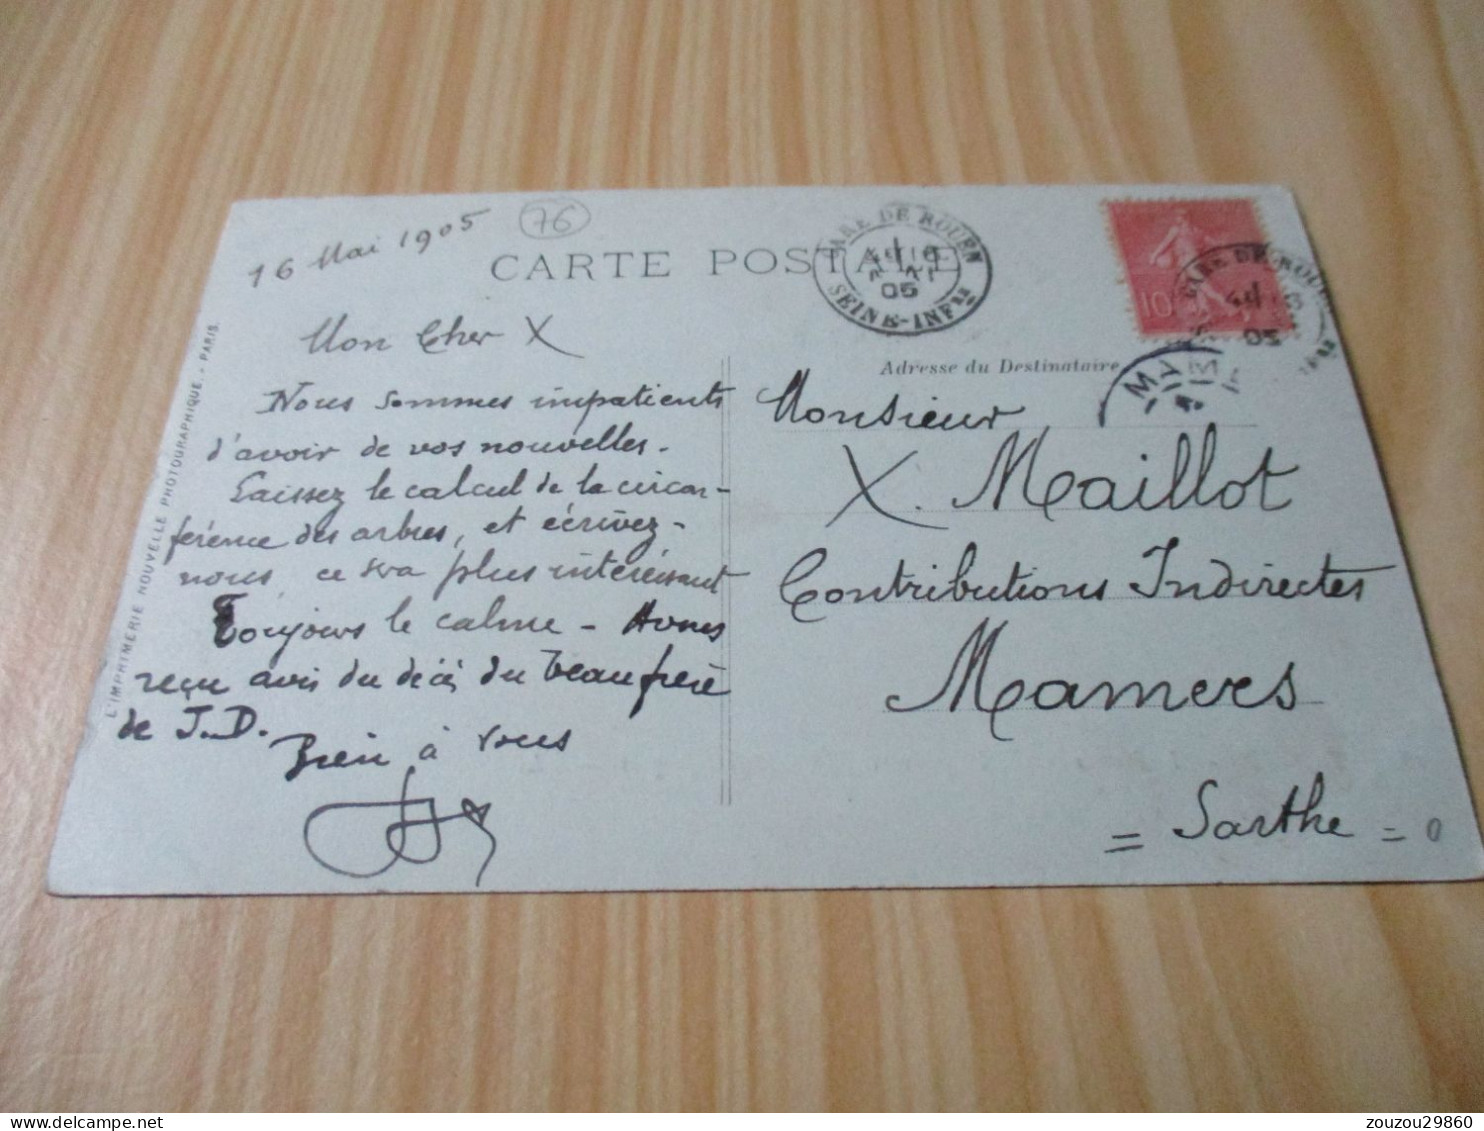 16 Mai 1905
76
CARTE POSTALE
GARE DE ROUEN
16
05
SEINE-INFRE
10
GARE DE ROUEN
05
Mon Cher X
Nous sommes impatients
d'avoir de vos nouvelles.
Laissez le calcul de la circon-
férence des arbres, et écrivez-
nous, ce sera plus intéressant
Toujours le calme - Avons
reçu avis du décès du beau frère
de J.D.
Bien à vous
Adresse du Destinataire
Monsieur
X. Maillot
Contributions Indirectes
Mamers
= Sarthe =
0
L'IMPRIMERIE NOUVELLE PHOTOGRAPHIQUE. - PARIS.
zouzou29860